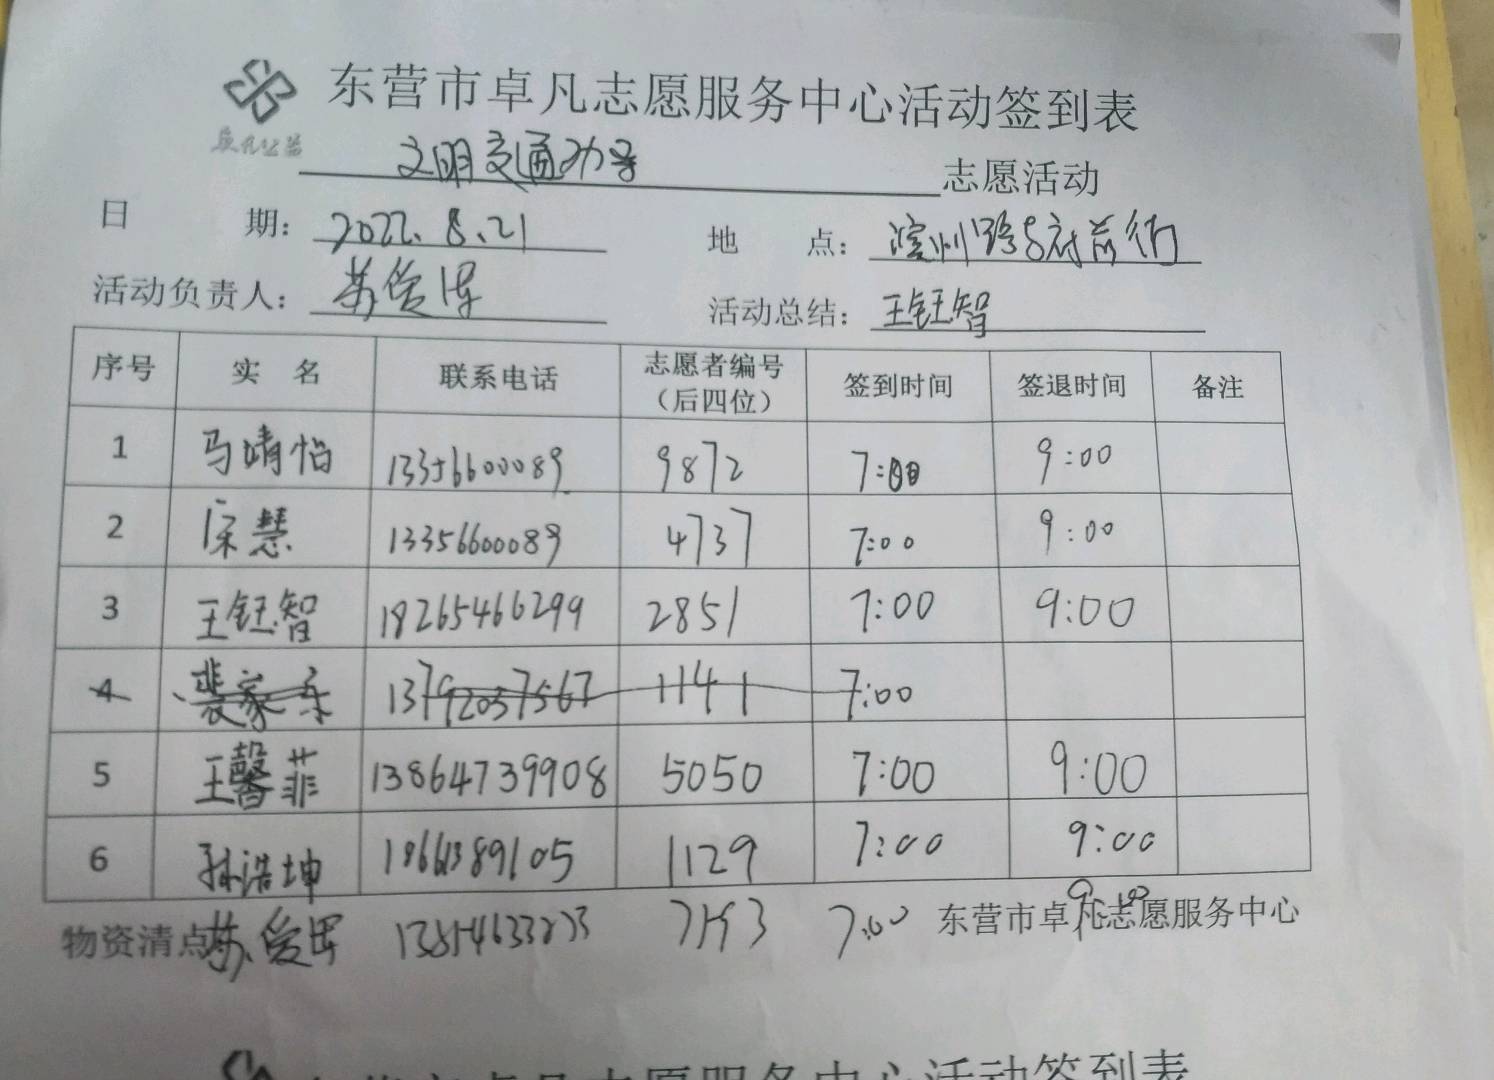 东营市卓凡志愿服务中心活动签到表
卓凡公益
文明交通劝导 志愿活动
日 期： 2022.8.21 地 点： 滨州路与府前街
活动负责人： 苏 活动总结： 王钰智
序号 实 名 联系电话 志愿者编号（后四位） 签到时间 签退时间 备注
1 马婧怡 13356600089 9872 7:00 9:00
2 宋慧 13356600089 4737 7:00 9:00
3 王钰智 18265466299 2851 7:00 9:00
4 裴家乐 13792037567 1141 7:00
5 王馨菲 13864739908 5050 7:00 9:00
6 孙浩坤 18661389105 1129 7:00 9:00
物资清点 苏 7:00 东营市卓凡志愿服务中心 9:00
东营市卓凡志愿服务中心活动签到表